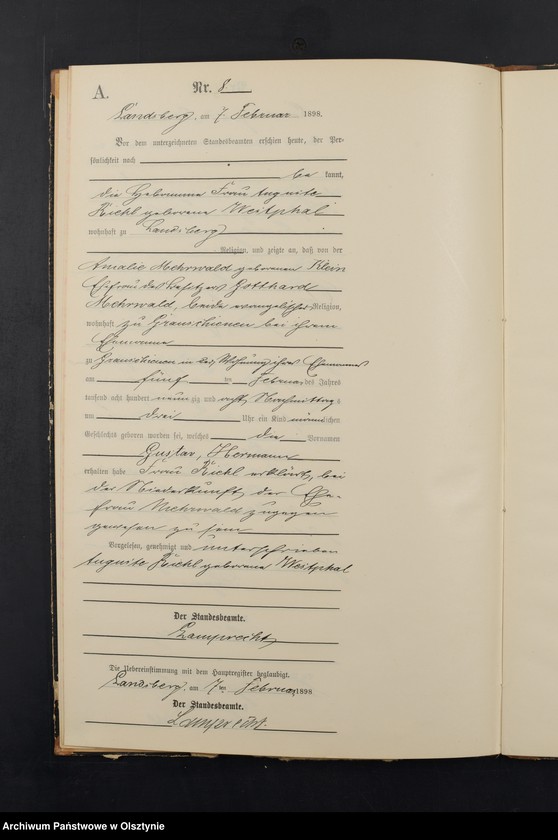 A.
Nr. 8
Landsberg, am 7. Februar 1898.
Vor dem unterzeichneten Standesbeamten erschien heute, der Per-
sönlichkeit nach
be kannt,
die Hebamme Frau Auguste
Riehl geborene Westphal
wohnhaft zu Landsberg
Religion, und zeigte an, daß von der
Amalie Mehrwald geborenen Klein
Ehefrau des Besitzers Gotthard
Mehrwald, beide evangelischer Religion,
wohnhaft zu Grauschienen bei ihrem
Ehemanne
zu Grauschienen in der Wohnung ihres Ehemannes
am fünf ten Februar des Jahres
tausend acht hundert neunzig und acht Nachmittags
um drei Uhr ein Kind männlichen
Geschlechts geboren worden sei, welches die Vornamen
Gustav, Hermann
erhalten habe. Frau Riehl erklärt, bei
der Niederkunft der Ehe-
frau Mehrwald zugegen
gewesen zu sein
Vorgelesen, genehmigt und unterschrieben
Auguste Riehl geborene Westphal
Der Standesbeamte.
Lamprecht
Die Uebereinstimmung mit dem Hauptregister beglaubigt.
Landsberg, am 7ten Februar 1898
Der Standesbeamte.
Lamprecht.
Archiwum Państwowe w Olsztynie